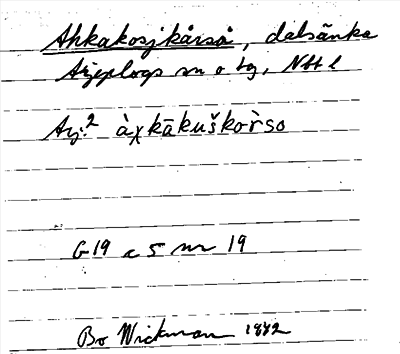 Ahkakosjkårså, dalsänka
Arjeplogs sn o tg, Nbt l
Arj:2 àχkākuškoȓso
G19 c 5 nr 19
Bo Wickman 1882